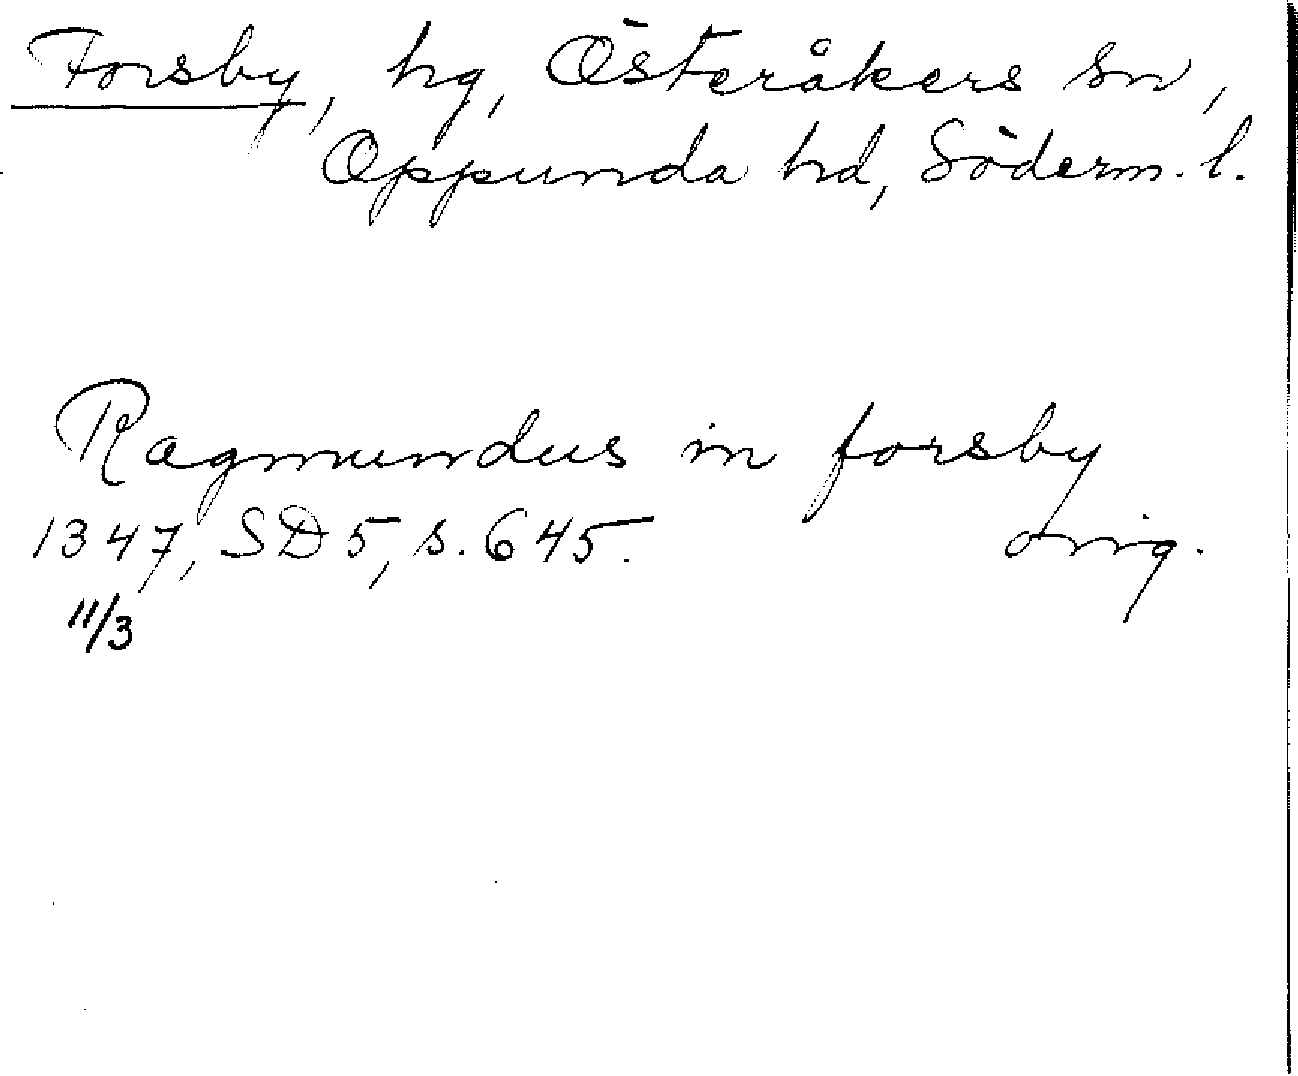 Forsby, hg, Österåkers sn,
Oppunda hd, Söderm. l.
Ragmundus in forsby
1347, SD 5, s. 645. orig.
11/3